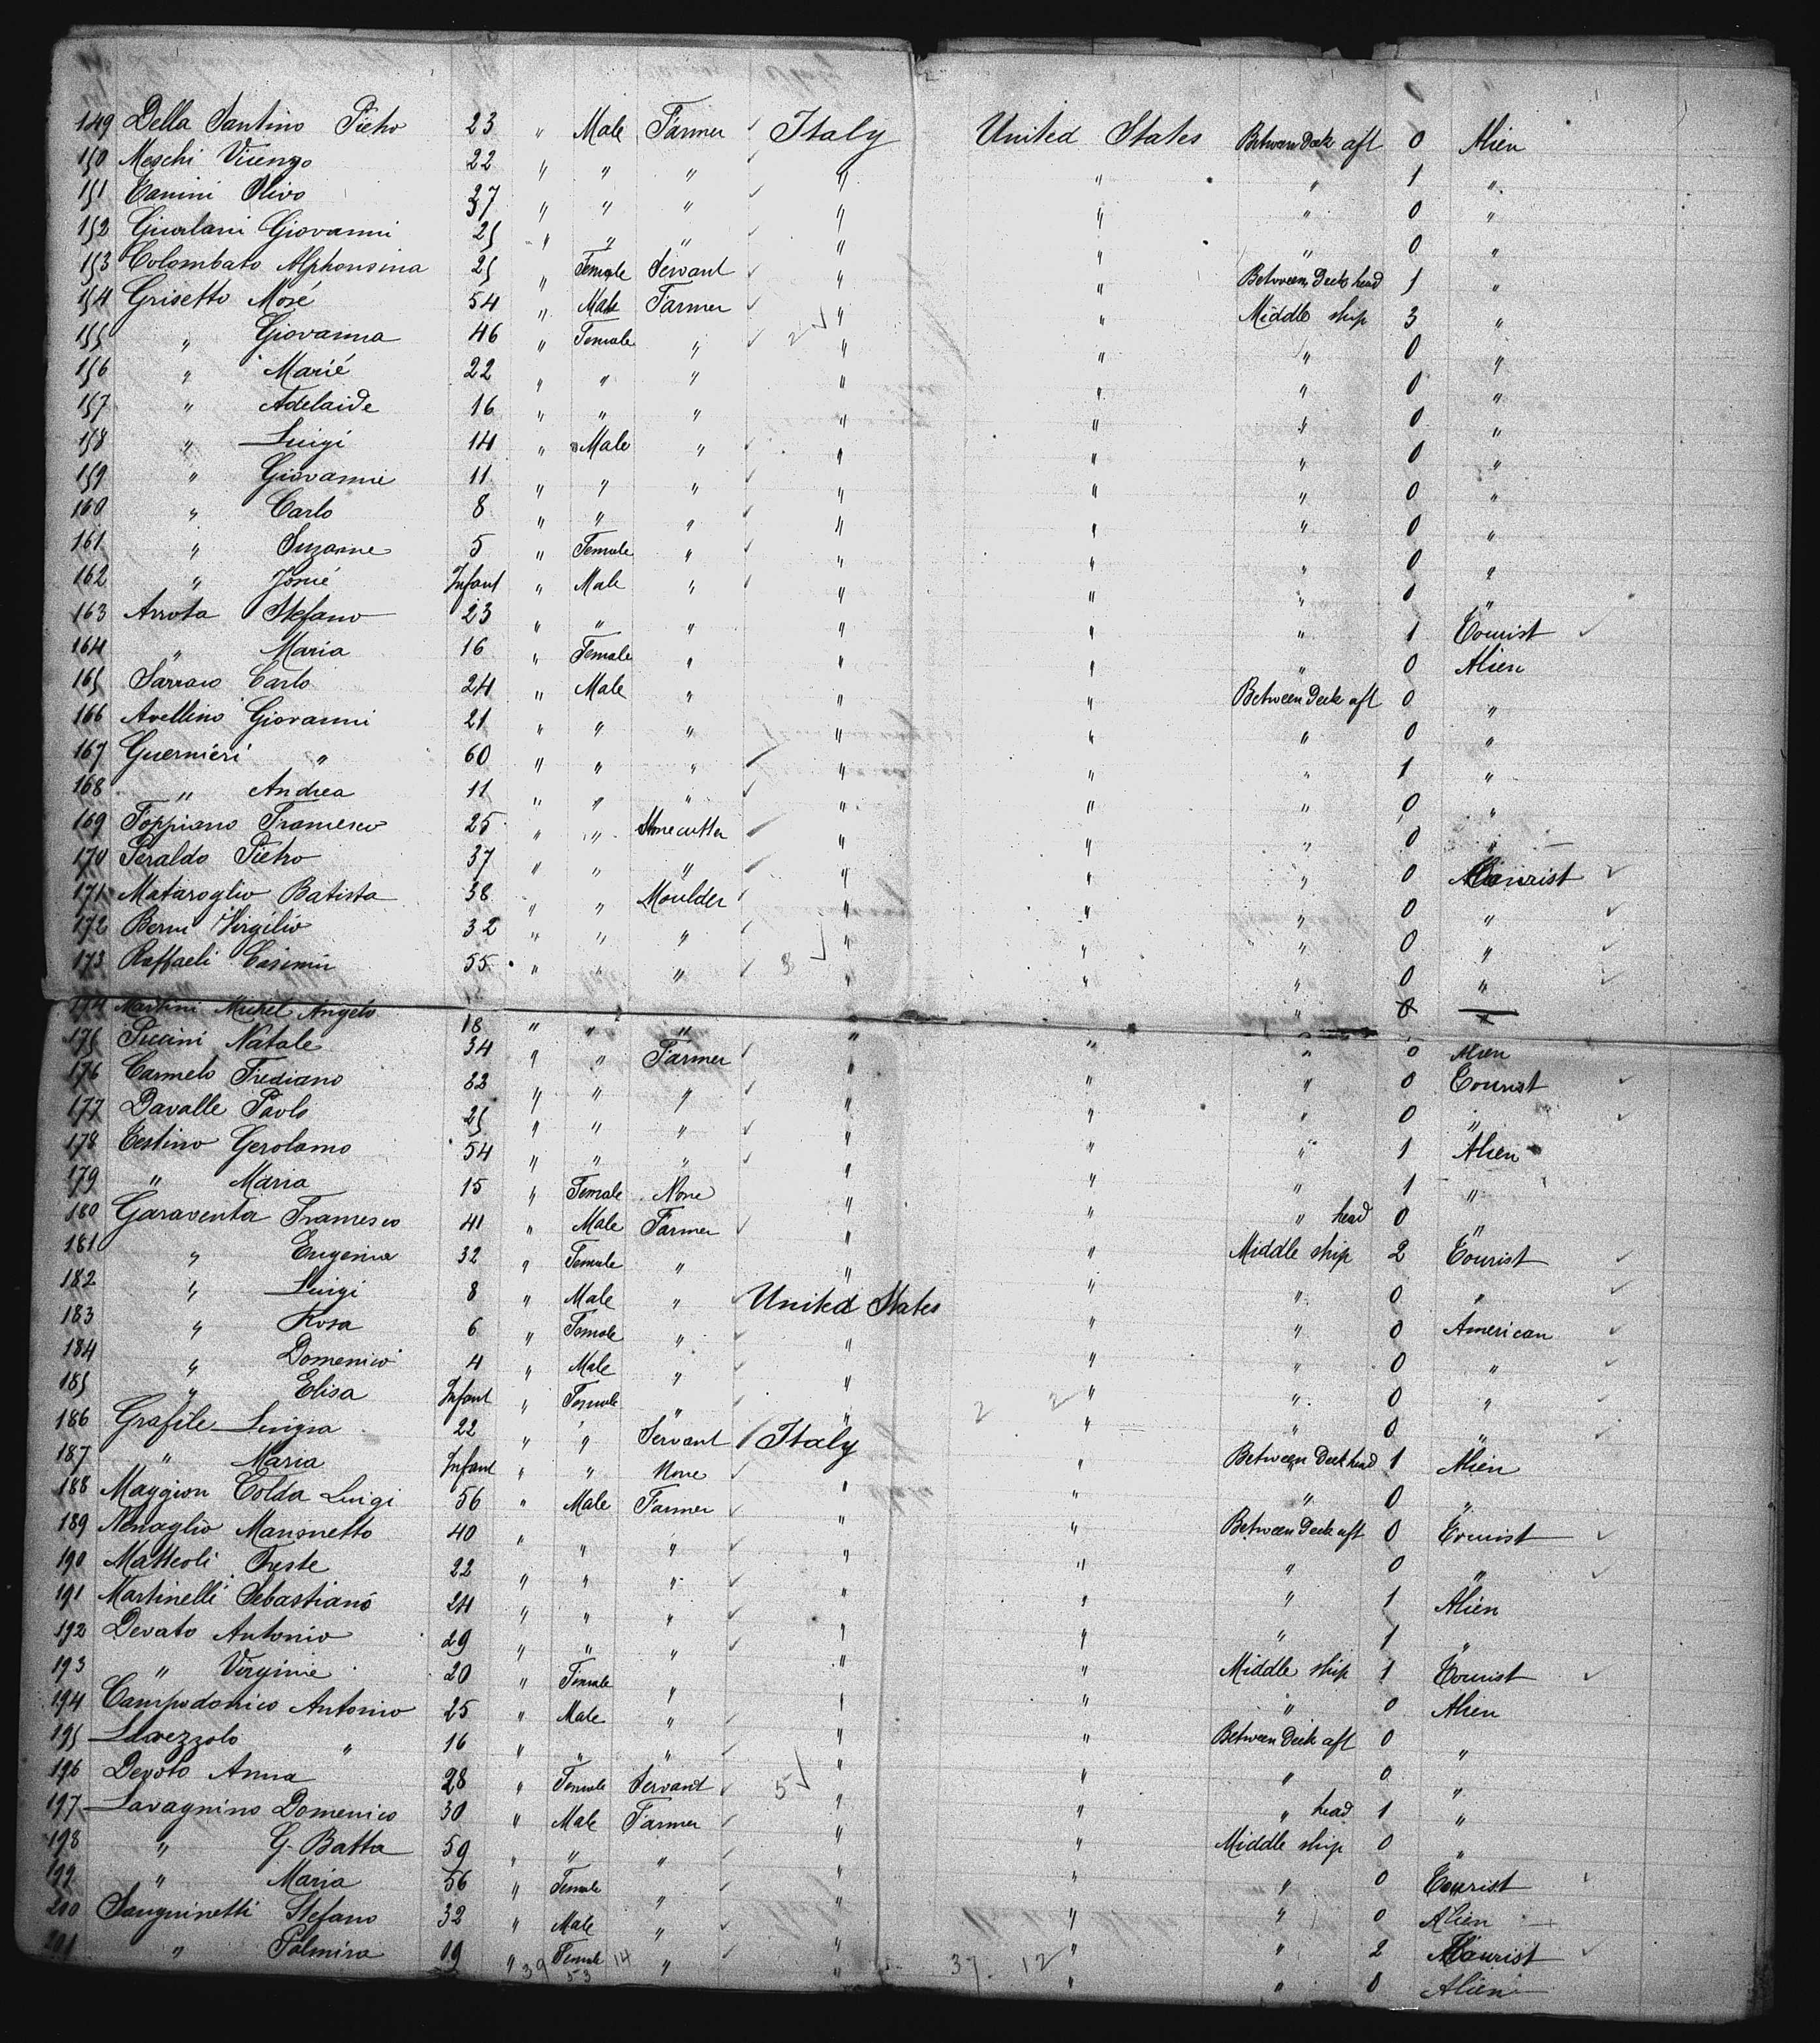 149 Della Santino Pietro 23 " Male Farmer Italy United States Between Deck aft 0 Alien
150 Meschi Vicenzo 22 " " " " " " 1 "
151 Tanini Olivo 37 " " " " " " 0 "
152 Giurlani Giovanni 25 " " " " " " 0 "
153 Colombato Alphonsina 25 " Female Servant " " Between Deck head 1 "
154 Grisetto Mosé 54 " Male Farmer " " Middle ship 3 "
155 " Giovanna 46 " Female " " " " 0 "
156 " Marié 22 " " " " " " 0 "
157 " Adelaide 16 " " " " " " 0 "
158 " Luigi 14 " Male " " " " 0 "
159 " Giovanni 11 " " " " " " 0 "
160 " Carlo 8 " " " " " " 0 "
161 " Suzanne 5 " Female " " " " 0 "
162 " Infant " Male " " " " 0 "
163 Arrota Stefano 23 " " " " " " 1 Tourist
164 " Maria 16 " Female " " " " 0 Alien
165 Carlo 24 " Male " " " Between Deck aft 0 "
166 Avellino Giovanni 21 " " " " " " 0 "
167 Guernieri " 60 " " " " " " 1 "
168 " Andrea 11 " " " " " " 0 "
169 Toppiano Francesco 25 " " Stonecutter " " " 0 "
170 Peraldo Pietro 37 " " " " " " 0 Tourist
171 Mataroglio Batista 38 " " Moulder " " " 0 "
172 Berni Virgilio 32 " " " " " " 0 "
173 Raffaeli Casimir 55 " " " " " " 0 "
174 Martini Michel Angelo 18 " " " " " " 0 "
175 Puccini Natale 34 " " Farmer " " " 0 Alien
176 Carmelo Frediano 22 " " " " " " 0 Tourist
177 Davalle Paolo 25 " " " " " " 0 "
178 Testino Gerolamo 54 " " " " " " 1 Alien
179 " Maria 15 " Female None " " " 1 "
180 Garaventa Francesco 41 " Male Farmer " " " head 0 "
181 " Eugenia 32 " Female " " " Middle ship 2 Tourist
182 " Luigi 8 " Male " United States " " 0 "
183 " Rosa 6 " Female " " " " 0 American
184 " Domenico 4 " Male " " " " 0 "
185 " Elisa Infant " Female " " " " 0 "
186 Grafile Luigia 22 " " Servant Italy " " 0 "
187 " Maria Infant " " None " " Between Deck head 1 Alien
188 Maggion Tolda Luigi 56 " Male Farmer " " " 0 "
189 40 " " " " " Between Deck aft 0 Tourist
190 Matteoli Oreste 22 " " " " " " 0 "
191 Martinelli Sebastiano 24 " " " " " " 1 Alien
192 Devato Antonio 29 " " " " " " 1 "
193 " Virginie 20 " Female " " " Middle ship 1 Tourist
194 Campodonico Antonio 25 " Male " " " " 0 Alien
195 " 16 " " " " " Between Deck aft 0 "
196 Devoto Anna 28 " Female Servant " " " 0 "
197 Lavagnino Domenico 30 " Male Farmer " " " head 1 "
198 " G. Batta 59 " " " " " Middle ship 0 "
199 " Maria 56 " Female " " " " 0 Tourist
200 Sanguinetti Stefano 32 " Male " " " " 0 Alien
201 " Palmira 19 " Female " " " " 2 Tourist
39 53 14 37 12 " 0 Alien